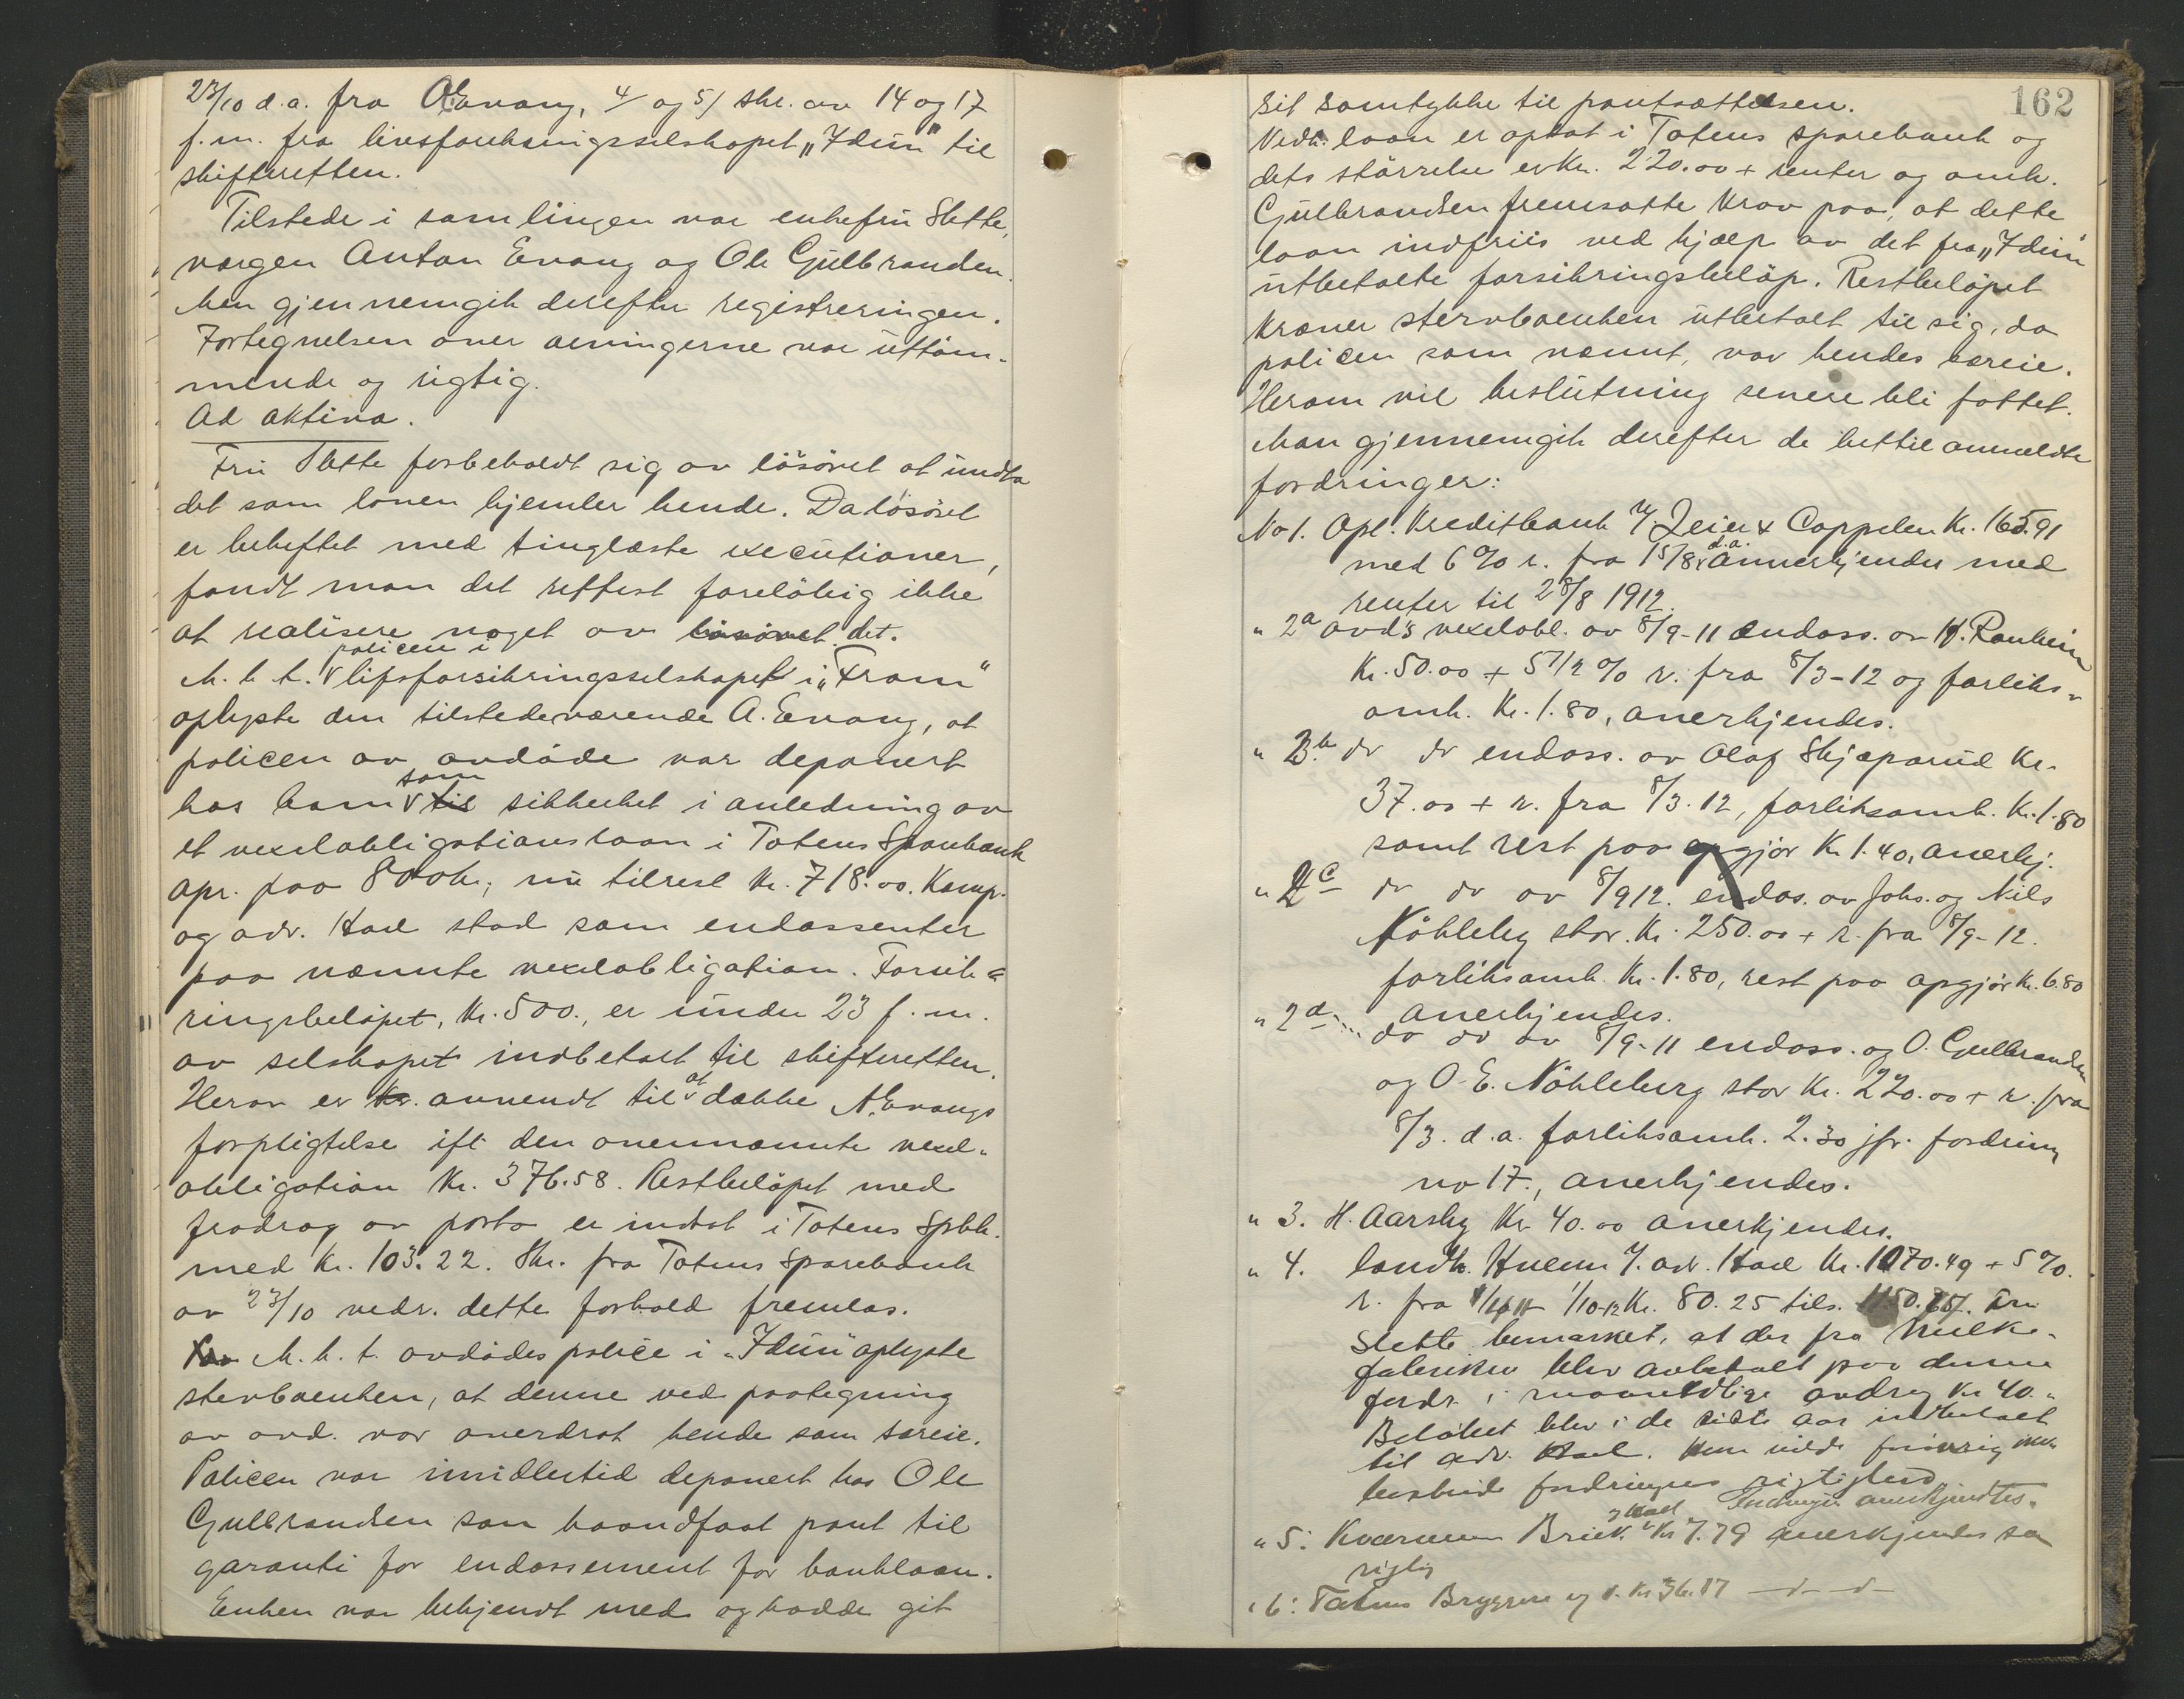 23/10 d.a. fra A. Evang, 4/ og 5/ skr. av 14 og 17
f.m. fra livsforsikringsselskapet „Idun" til
skifteretten.
Tilstede i samlingen var enkefru Slette,
vergen Anton Evang og Ole Gulbrandsen.
Man gjennemgik derefter registreringen.
Fortegnelsen over avingerne var uttöm-
mende og rigtig.
Ad aktiva.
Fru Slette forbeholdt sig av lösöret at undta
det som loven hjemler hende. Da lösöret
er beheftet med tinglæste executioner,
fandt man det rettest foreløbig ikke
at realisere noget av lösöret det.
M. h. t. policen i livsforsikringsselskapet i „Fram"
oplyste den tilstedeværende A. Evang, at
policen av avdøde var deponert
hos ham som til sikkerhet i anledning av
et vexelobligationslaan i Totens Sparebank
opr. paa 800 kr, nu tilrest kr. 718.00. Komp.
og adv. Hoel stod som endossenter
paa nævnte vexelobligation. Forsik-
ringsbeløpet, kr. 500., er under 23 f.m.
av selskapet indbetalt til skifteretten.
Herav er kr. anvendt til at dække A. Evangs
forpligtelse ifl. den ovennævnte vexel-
obligation kr. 376.58. Restbeløpet med
fradrag av porto er indsat i Totens Spbk.
med kr. 103.22. Skr. fra Totens Sparebank
av 23/10 vedr. dette forhold fremlas.
M. h. t. avdødes police i „Idun" oplyste
stervboenken, at denne ved paategning
av avd. var overdrat hende som særeie.
Policen var imidlertid deponert hos Ole
Gulbrandsen som haandfaat pant til
garanti for endossement for banklaan.
Enken var bekjendt med og hadde git
162
sit samtykke til pantsættelsen.
Vedk. laan er optat i Totens sparebank og
dets störrelse er kr. 220.00 + renter og omk.
Gulbrandsen fremsatte krav paa, at dette
laan indfries ved hjælp av det fra „Idun"
utbetalte forsikringsbeløp. Restbeløpet
kræver stervboenken utbetalt til sig, da
policen som nævnt, var hendes særeie.
Herom vil beslutning senere bli fattet.
Man gjennemgik derefter de hertil anmeldte
fordringer:
No 1. Opl. Kreditbank v/ Zeier & Cappelen Kr. 165.91
med 6 % r. fra 15/8 d.a. Annerkjendes med
renter til 28/8 1912.
" 2a avd's vexelobl. av 8/9-11 endoss. av H. Ranheim
Kr. 50.00 + 5 1/2 % r. fra 8/3-12 og forliks-
omk. Kr. 1.80, anerkjendes.
" 2b. do do endoss. av Olaf Skjeparud Kr.
37.00 + r. fra 8/3.12, forliksomk. Kr. 1.80
samt rest paa opgjør Kr 1.40, anerkj.
" 2c do do av 8/9 12. endos. av Johs. og Nils
Nøkleby stor. Kr. 250.00 + r. fra 8/9-12.
forliksomk. Kr. 1.80, rest paa opgjør Kr. 6.80
anerkjendes.
" 2d ... do do av 8/9-11 endoss. og O. Gulbrandsen
og O. E. Nökleberg stor Kr. 220.00 + r. fra
8/3. d.a. forliksomk. 2.30 jfr. fordring
no 17., anerkjendes.
" 3. H. Aarsby Kr 40.00 anerkjendes.
" 4. landh. v/ adv. Hoel Kr. 1070.49 + 5 %.
r. fra 1/10-12 Kr. 80.25 tils. Fru
Slette bemærket, at der fra Melke-
fabriken blev avbetalt paa denne
fordr. i maanedlige avdrag Kr 40.
Beløbet blev i de siste aar indbetalt
til adv. Hoel. Hun vilde forøvrig ikke
bestride fordringens rigtighed
Fordringen anerkjendtes.
" 5: Kværnum Bruk. Kr 7.79 anerkjendes som
rigtig
" 6: Totens Bryggeri Kr 36.17 —d— —d—